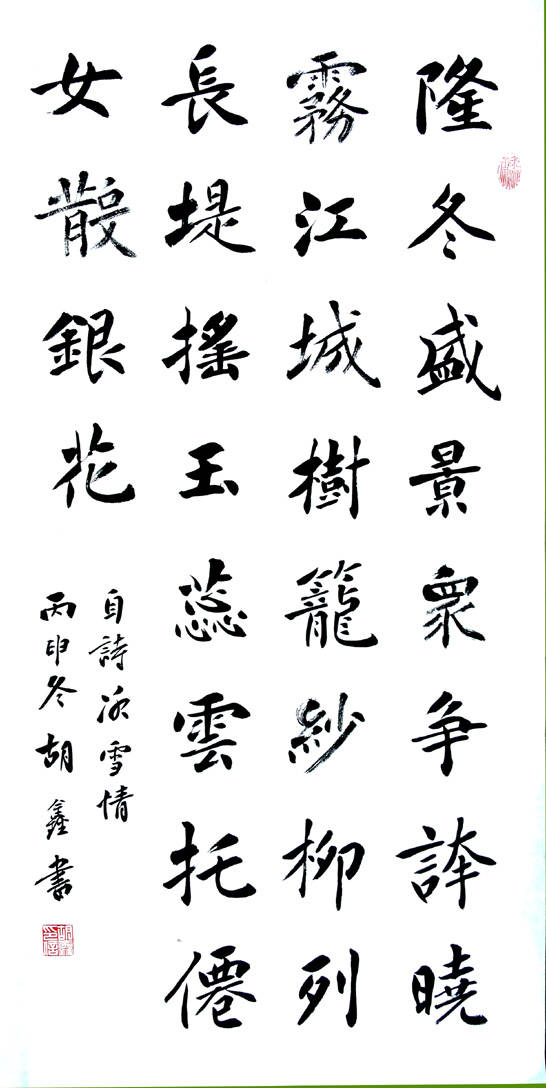 隆冬盛景衆争誇曉
霧江城樹籠紗柳列
長堤搖玉蕊雲托僊
女散銀花
自詩冰雪情
丙申冬胡鑫書